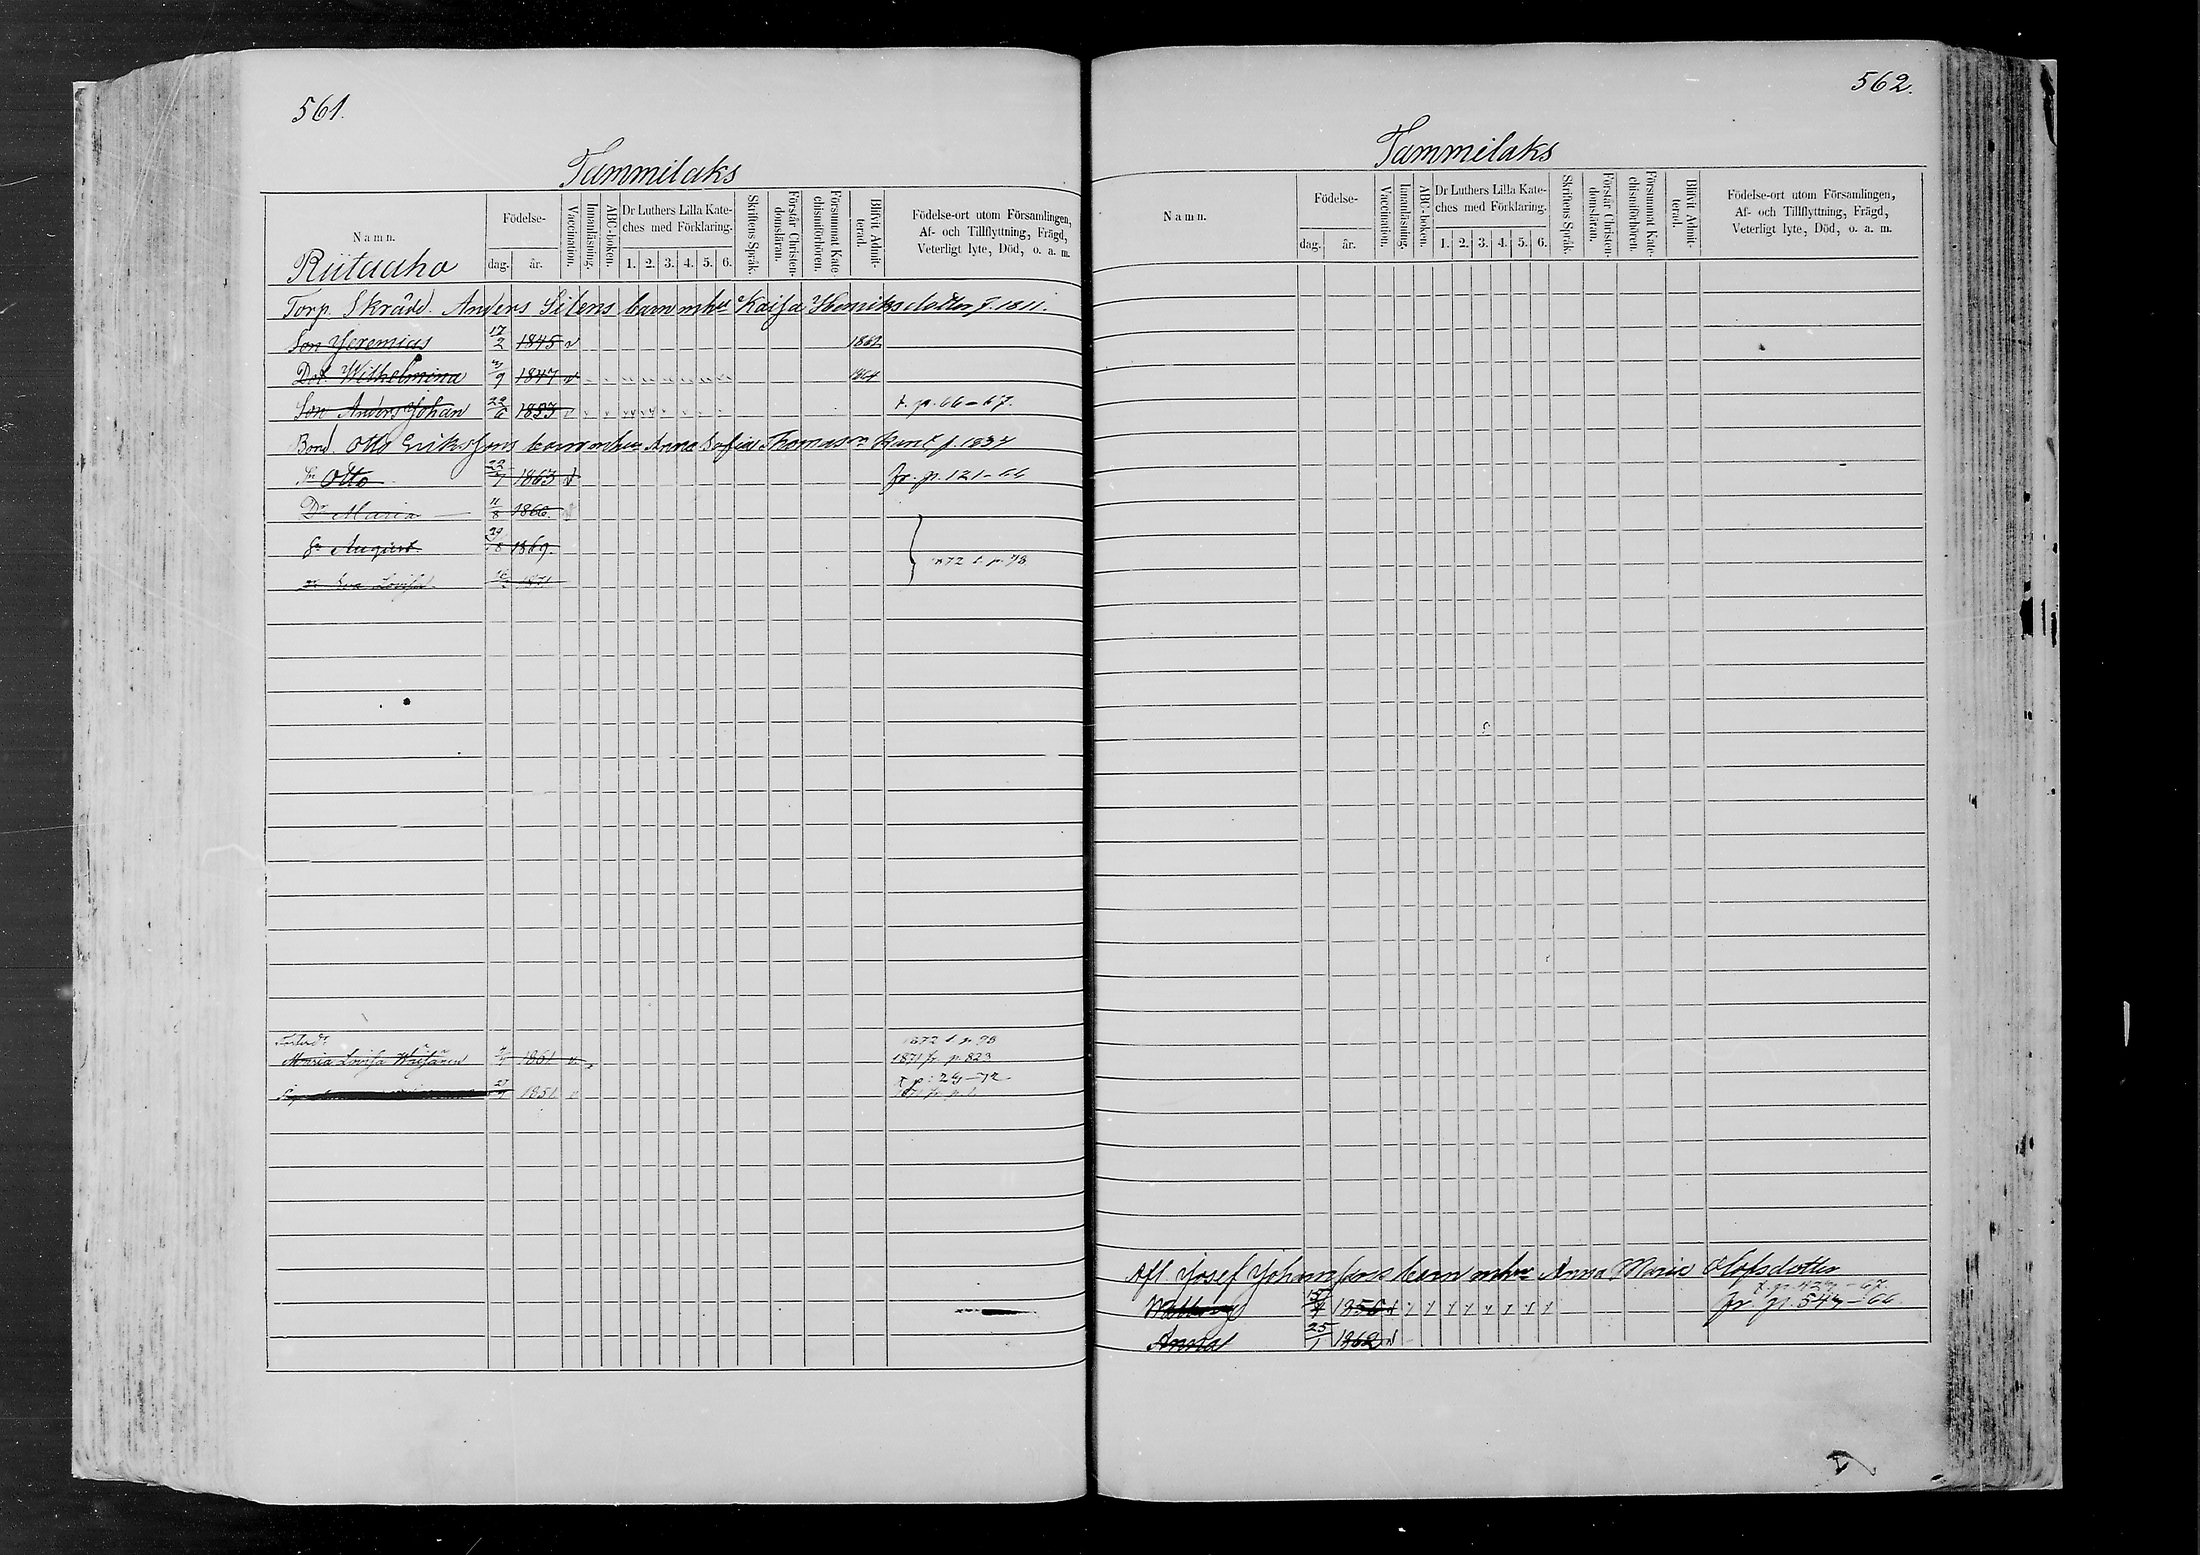 561.
Tammilaks
Namn.
Födelse-
dag.
år.
Vaccination.
Innanläsning.
ABC-boken.
Dr Luthers Lilla Kate-
ches med Förklaring.
1. 2. 3. 4. 5. 6.
Skriftens Språk.
Förstår Christen-
domsläran.
Försummat Kate-
chismiförhören.
Blifvit Admit-
terad.
Födelse-ort utom Församlingen,
Af- och Tillflyttning, Frägd,
Veterligt lyte, Död, o. a. m.
Riitaaho
Torp. Skrädd. Anders Silens barn mhu Kaisa Henriksdotter f. 1811.
Son Jeremias 17/2 1845 v 1861
Dot. Wilhelmina /9 1847 v 1864
Son Anders Johan 22/6 1853 v t. p. 66-67.
Bond. Otto Erikssons barn mhu Anna Sofia Thomasdr f. 1834
Sn Otto 22/7 1863 v fr. p. 121-66
Dr Maria 11/8 1866.
Sn August 29/8 1869.
1872 t. p. 98
Dr Eva Lovisa 16/ 1871
Maria Lovisa 1861 v
1872 t. p. 98
1871 fr. p. 823
27/ 1851 v
t p: 24-72
1871 fr. p.
562.
Tammilaks
Namn.
Födelse-
dag.
år.
Vaccination.
Innanläsning.
ABC-boken.
Dr Luthers Lilla Kate-
ches med Förklaring.
1. 2. 3. 4. 5. 6.
Skriftens Språk.
Förstår Christen-
domsläran.
Försummat Kate-
chismiförhören.
Blifvit Admit-
terad.
Födelse-ort utom Församlingen,
Af- och Tillflyttning, Frägd,
Veterligt lyte, Död, o. a. m.
Afl. Josef Johanssons barn mhu Anna Maria Olofsdotter
15/4 1856 v
t. p. 424-67.
fr. p. 544-66.
Anna 25/1 1862 v